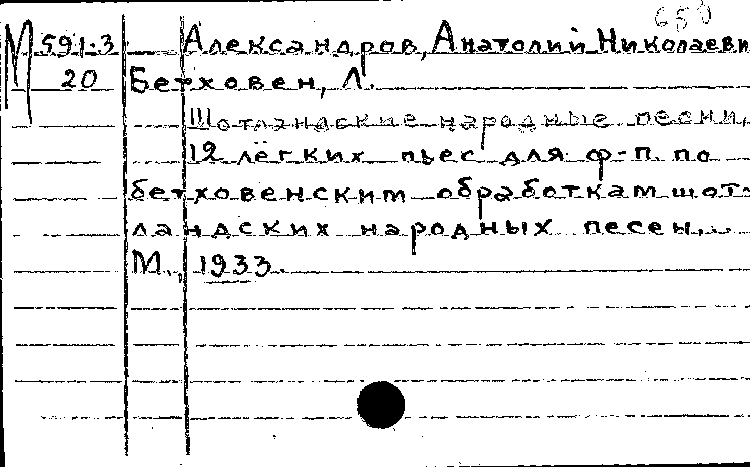 650
М 591-3 Александров, Анатолий Николаеви
20 Бетховен, Л.
Шотландские народные песни,
12 лёгких пьес для ф-п. по
бетховенским обработкам шот-
ландских народных песен...
М., 1933.